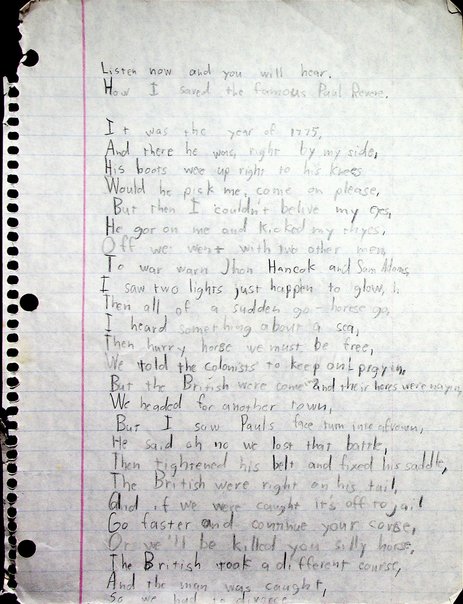 Listen now and you will hear.
How I saved the famous Paul Revere.
It was the year of 1775,
And there he was, right by my side,
His boots wee up right to his knees
Would he pick me, come on please,
But then I couldn't belive my eyes,
He got on me and kicked my thyes,
Off we went with two other men,
To war warn Jhon Hancok and Sam Adams,
I saw two lights just happen to glow,
Then all of a sudden go - horese go,
I heard something about a sea,
Then hurry horse we must be free,
We told the colonists to keep on prayin,
But the British were come and their hores were
We headed for another town,
But I saw Pauls face turn into a frown,
He said oh no we lost that battle,
Then tightened his belt and fixed his saddle,
The British were right on his tail,
And if we were caught it's off to jail
Go faster and continue your corse,
Or we'll be killed you silly horse,
The British took a different course,
And the man was caught,
So we had to